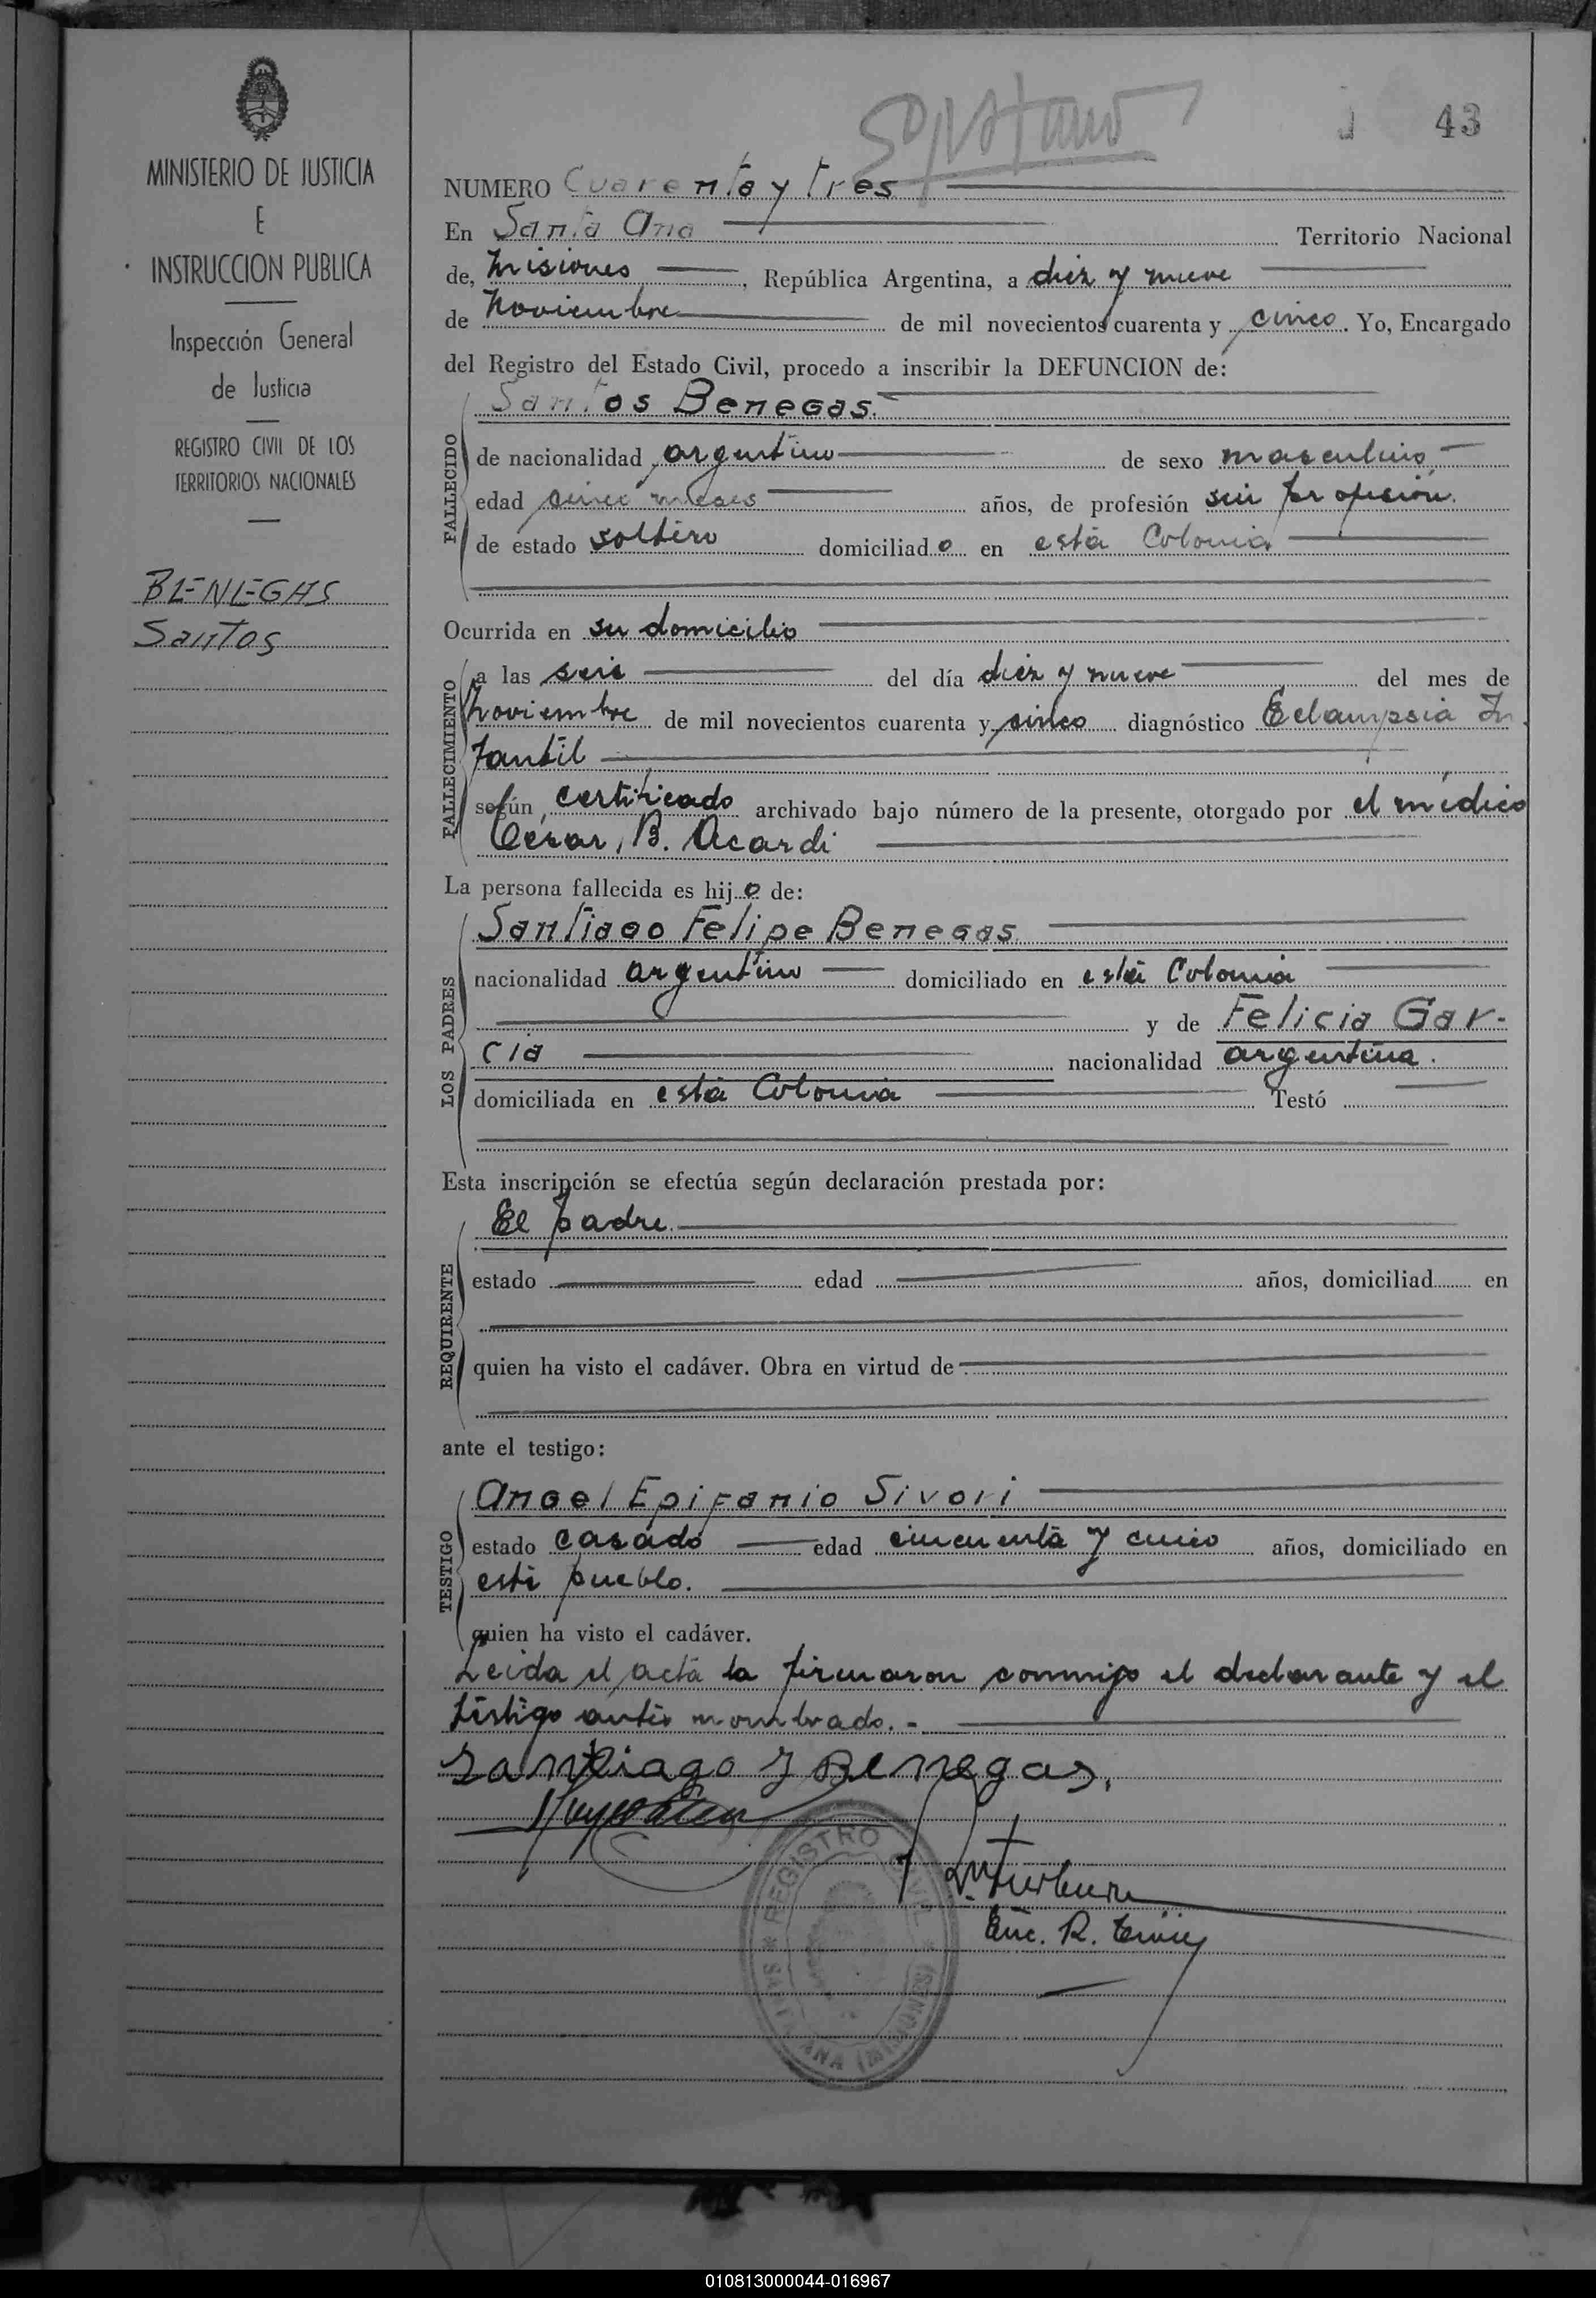 43
MINISTERIO DE JUSTICIA
E
INSTRUCCION PUBLICA
Inspección General
de Justicia
REGISTRO CIVIL DE LOS
TERRITORIOS NACIONALES
BENEGAS
Santos
NUMERO Cuarenta y tres
En Santa Ana Territorio Nacional
de, Misiones, República Argentina, a diez y nueve
de Noviembre de mil novecientos cuarenta y cinco. Yo, Encargado
del Registro del Estado Civil, procedo a inscribir la DEFUNCION de:
FALLECIDO
Santos Benegas.
de nacionalidad argentino de sexo masculino
edad cinco meses años, de profesión sin profesión.
de estado soltero domiciliado en esta Colonia
Ocurrida en su domicilio
FALLECIMIENTO
a las seis del día diez y nueve del mes de
Noviembre de mil novecientos cuarenta y cinco diagnóstico Eclampsia In
fantil
según certificado archivado bajo número de la presente, otorgado por el médico
César, B. Acardi
La persona fallecida es hijo de:
LOS PADRES
Santiago Felipe Benegas
nacionalidad argentino domiciliado en esta Colonia
y de Felicia Gar-
cia nacionalidad argentina.
domiciliada en esta Colonia Testó
Esta inscripción se efectúa según declaración prestada por:
REQUIRENTE
El padre.
estado edad años, domiciliad en
quien ha visto el cadáver. Obra en virtud de
ante el testigo:
TESTIGO
Angel Epifanio Sivori
estado casado edad cincuenta y cinco años, domiciliado en
este pueblo.
quien ha visto el cadáver.
Leida el acta la firmaron conmigo el declarante y el
testigo antes nombrado.-
Santiago F Benegas.
REGISTRO CIVIL * SANTA ANA (MISIONES) *
Enc. R. Civil
010813000044-016967